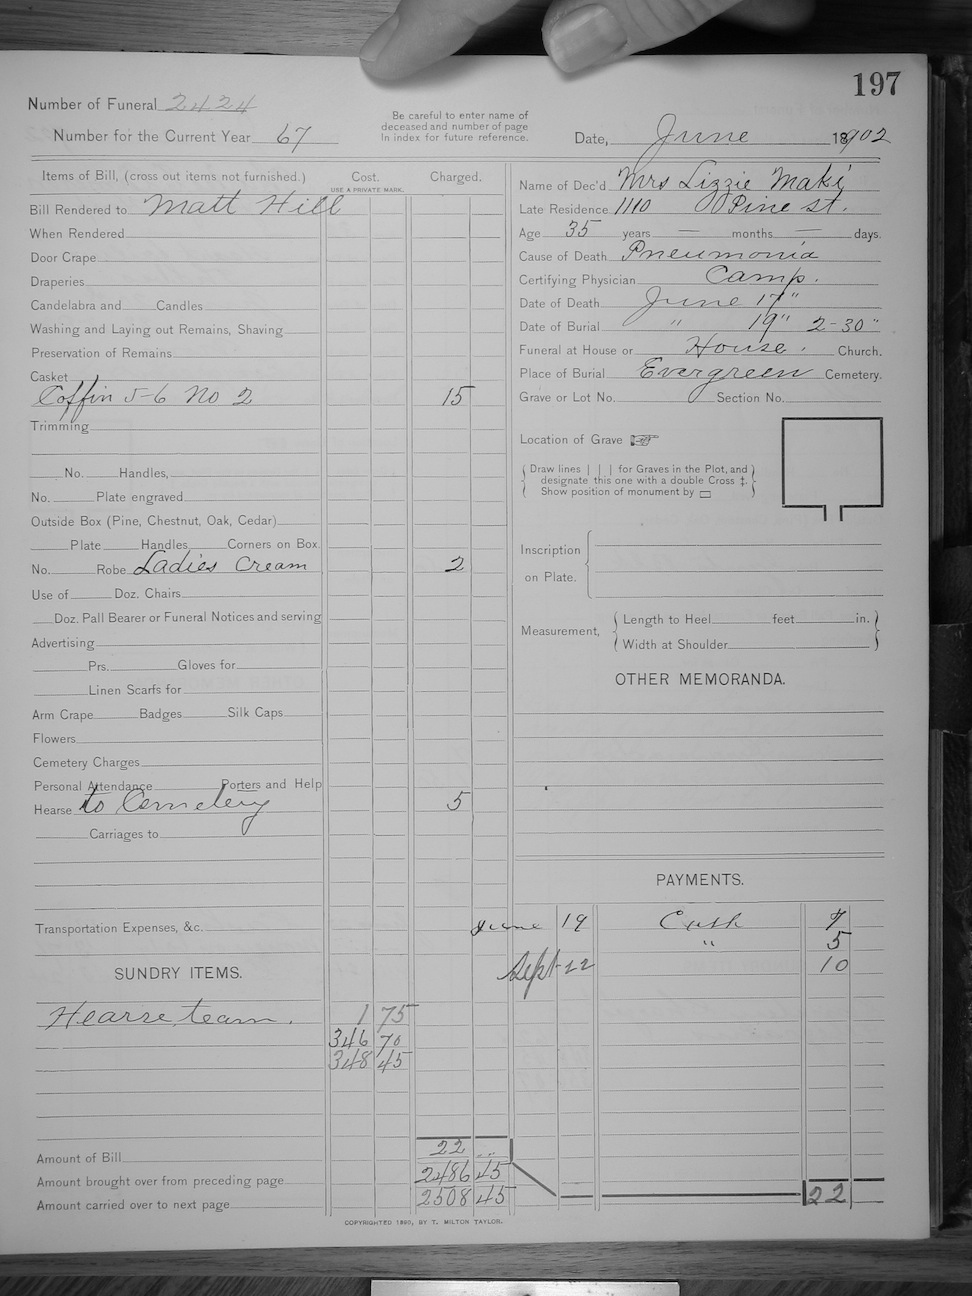 197
Number of Funeral 2424
Be careful to enter name of
deceased and number of page
in index for future reference.
Number for the Current Year 67
Date, June 1902
Items of Bill, (cross out items not furnished.) Cost. Charged.
USE A PRIVATE MARK.
Bill Rendered to Matt Hill
When Rendered
Door Crape
Draperies
Candelabra and Candles
Washing and Laying out Remains, Shaving
Preservation of Remains
Casket
Coffin 5-6 No 2 15
Trimming
No. Handles,
No. Plate engraved
Outside Box (Pine, Chestnut, Oak, Cedar)
Plate Handles Corners on Box.
No. Robe Ladies Cream 2
Use of Doz. Chairs
Doz. Pall Bearer or Funeral Notices and serving
Advertising
Prs. Gloves for
Linen Scarfs for
Arm Crape Badges Silk Caps
Flowers
Cemetery Charges
Personal Attendance Porters and Help
Hearse to Cemetery 5
Carriages to
Transportation Expenses, &c.
SUNDRY ITEMS.
Hearse team. 1 75
346 70
348 45
Amount of Bill 22 ..
Amount brought over from preceding page 2486 45
Amount carried over to next page 2508 45
Name of Dec'd Mrs Lizzie Maki
Late Residence 1110 Pine st.
Age 35 years — months — days.
Cause of Death Pneumonia
Certifying Physician Camp.
Date of Death June 17"
Date of Burial " 19" 2-30"
Funeral at House or House. Church.
Place of Burial Evergreen Cemetery.
Grave or Lot No. Section No.
Location of Grave
Draw lines | | | for Graves in the Plot, and
designate this one with a double Cross ‡.
Show position of monument by
Inscription
on Plate.
Measurement, Length to Heel feet in.
Width at Shoulder
OTHER MEMORANDA.
PAYMENTS.
June 19 Cash 7
" 5
Sept 22 10
22
COPYRIGHTED 1890, BY T. MILTON TAYLOR.